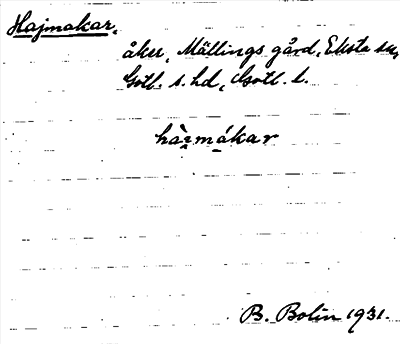 Hajmakar,
åker, Mällings gård, Eksta sn,
Gotl. s. hd, Gotl. l.
hàımákar
B. Bolin 1931.